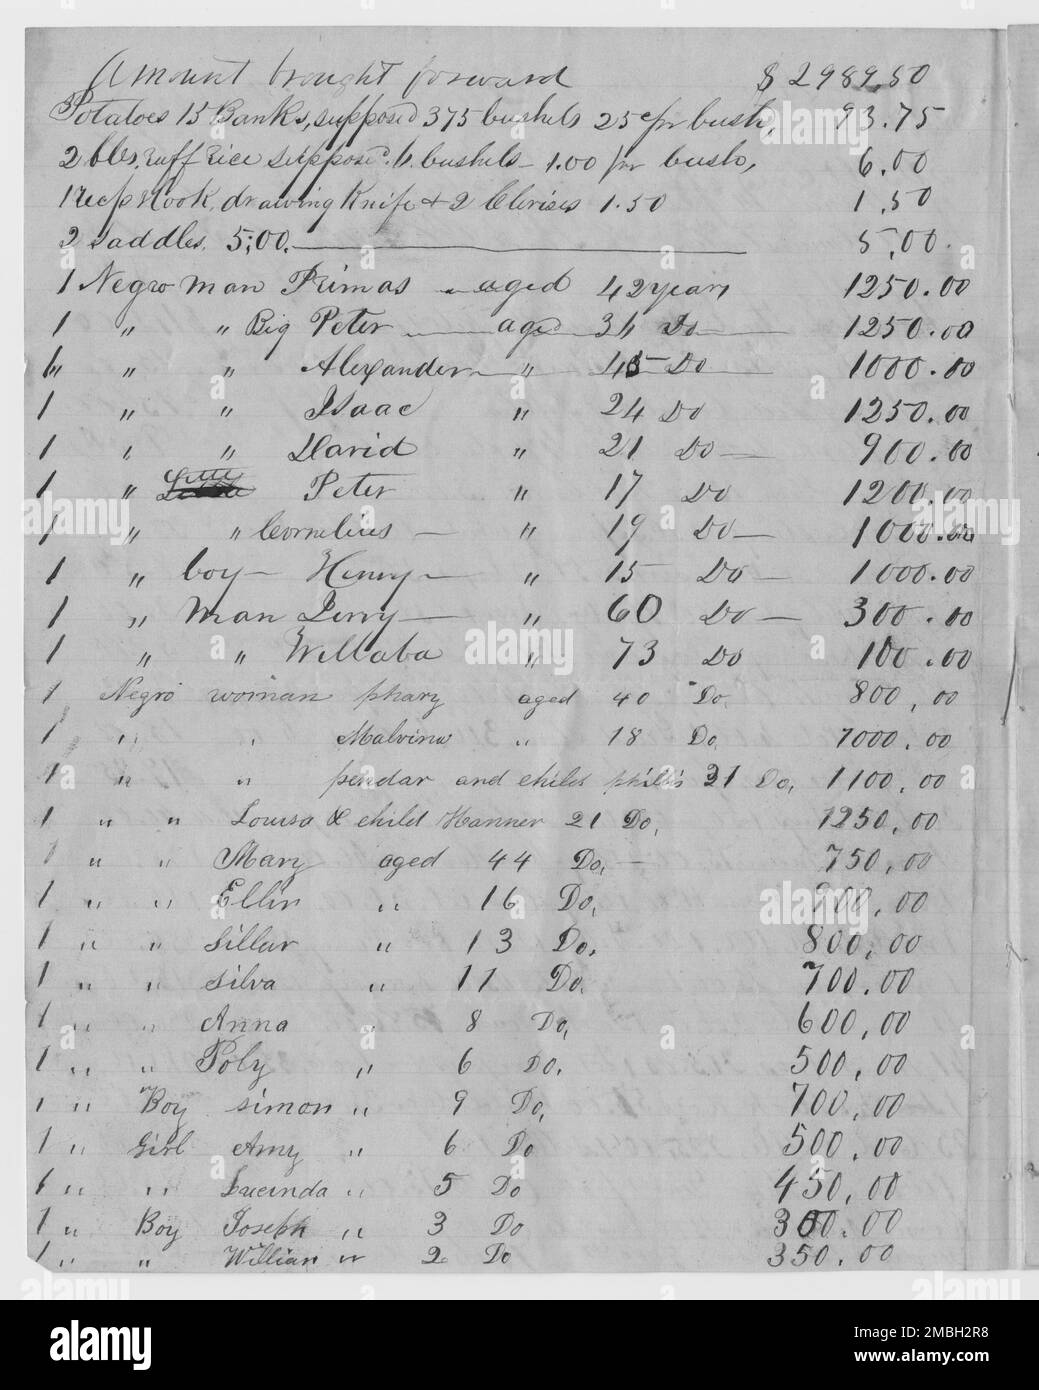 Amount brought forward $ 2989.50
Potatoes 15 Banks, supposed 375 bushels 25 c pr bush, 93.75
2 bbls, ruff Rice supposed 6 bushels - 1.00 pr bush, 6.00
1 Hook, drawing Knife & 2 1.50 1.50
2 saddles, 5,00. 5,00.
1 Negro man Primas aged 42 years 1250.00
1 " " Big Peter aged 34 Do 1250.00
1 " " Alexander " 45 Do 1000.00
1 " " Isaac " 24 Do 1250.00
1 " " David " 21 Do 900.00
1 " Little Peter " 17 Do 1200.00
1 " " Cornelius " 19 Do 1000.00
1 " boy Henry " 15 Do 1000.00
1 " man Jerry " 60 Do 300.00
1 " " Willaba " 73 Do 100.00
1 Negro woman phary aged 40 Do, 800,00
1 " " Malvina " 18 Do, 1000,00
1 " " pendar and child phillis 31 Do, 1100,00
1 " " Louisa & child Hanner 21 Do, 1250,00
1 " " Mary aged 44 Do, 750,00
1 " " Ellin " 16 Do, 900,00
1 " " Sillar " 13 Do, 800,00
1 " " silva " 11 Do, 700,00
1 " " Anna " 8 Do, 600,00
1 " " Poly " 6 Do, 500,00
1 " Boy simon " 9 Do, 700,00
1 " Girl Amy " 6 Do 500,00
1 " " Lucinda " 5 Do 450,00
1 " Boy Joseph " 3 Do 300.00
1 " " Willian " 2 Do 350.00
alamy
Image ID: 2MBH2R8
www.alamy.com